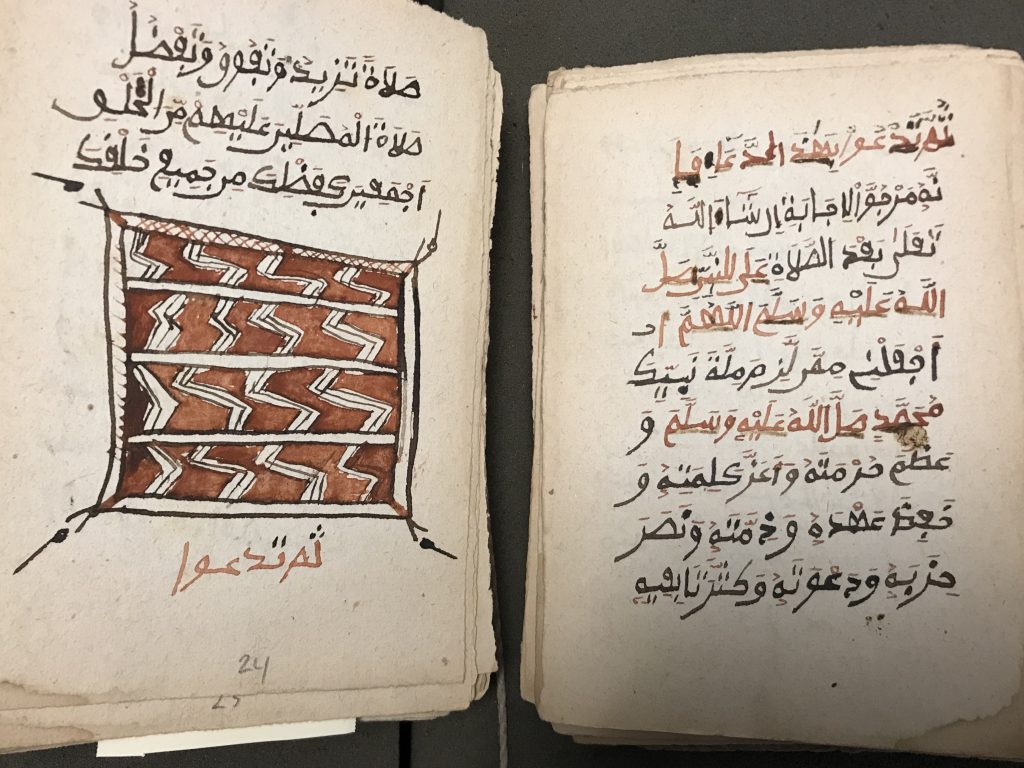 صَلَاةً تَزِيدُ وَتَفُوقُ وَتَفْضُلُ
صَلَاةَ الْمُصَلِّينَ عَلَيْهِمْ مِّنَ الْخَلْقِ
أَجْمَعِينَ كَفَضْلِكَ مِن جَمِيعِ خَلْقِكَ
ثم تدعوا
24
ثُمَّ تَدْعُوا بِهَذَا الدُّعَاءِ فَإِ
نَّهُ مَرْجُوُّ الْإِجَابَةِ إِن شَاءَ اللَّهُ
تَعَلَى بَعْدَ الصَّلَاةِ عَلَى النَّبِيِّ صَلَّ
اللَّهُ عَلَيْهِ وَسَلَّمَ اللَّهُمَّ
اجْعَلْنِي مِمَّن لَّزِمَ مِلَّةَ نَبِيِّكَ
مُحَمَّدٍ صَلَّ اللَّهُ عَلَيْهِ وَسَلَّمَ وَ
عَظَّمَ حُرْمَتَهُ وَأَعَزَّ كَلِمَتَهُ وَ
حَفِظَ عَهْدَهُ وَذِمَّتَهُ وَنَصَرَ
حِزْبَهُ وَدَعْوَتَهُ وَكَثَّرَ تَابِعِيهِ